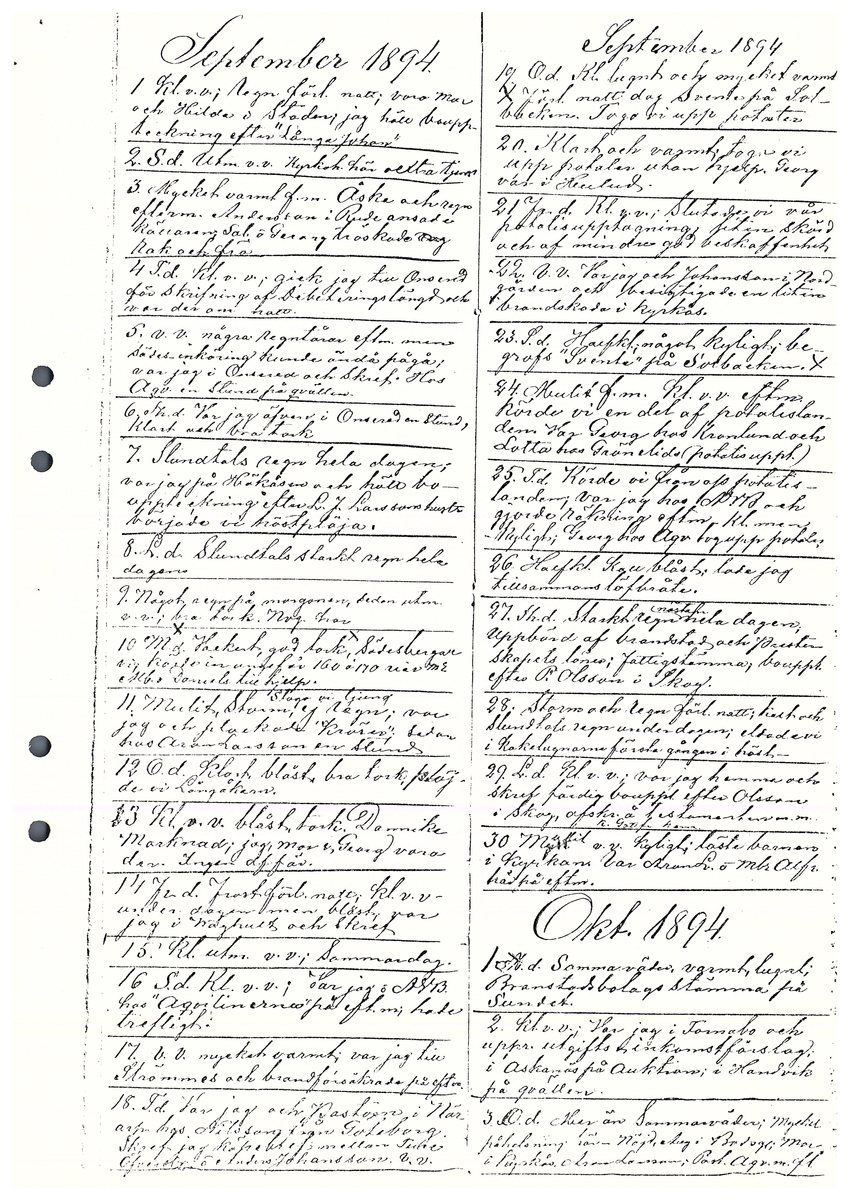 September 1894.
1 Kl. v.v; regn förl. natt; voro Mor
och Hilda i Staden; jag höll boupp-
teckning efter "Långe Johan"
2. S.d. Utm. v.v. Kyrkoh. här
3 Mycket varmt f.m. Åska och regn
efterm. Andersson i Rude ansade
Georg tröskade råg
rak och frö
4 T.d. Kl. v.v.; gick jag till Onsered
för Skrifning af Debiteringslängd och
var der om natt.
5. v.v. några regntårar eftm. men
Södes inköring kunde ändå pågå;
var jag i Onsered och Skref. Hos
Agv. en Stund på qvällen.
6. Th.d. Var jag äfven i Onsered en Stund,
Klart och bra tork
7. Stundtals regn hela dagen;
var jag på Håkåsen och höllt bo-
uppteckning efter L. J. Larssons hustru
började vi höstplöja.
8. L.d. Stundtals starkt regn hela
dagen
9. Något regn på morgonen, sedan utm.
v.v.; bra tork.
10 M.d. Vackert, god tork, Södesbergar
vi, körde in ungefär 160 à 170
Daniels till hjelp.
11. Mulit, Storm, ej regn; var
Slogo vi ljung
jag och plockade "Kröser" sedan
hos Aron Larsson en Stund
12 O.d. Klart, blåst, bra tork, plöj-
de vi Långåkern.
13 Kl. v.v. blåst, tork. Dannike
Marknad; jag, Mor o. Georg voro
der. Ingen affär.
14 Fr.d. Frost förl. natt; Kl. v.v-
under dagen men blåst, var
jag i Häghult och Skref
15. Kl. utm. v.v.; Sommardag.
16 S.d. Kl. v.v.; Var jag o. AVB.
hos "Agvilinernes" på eftm; hade
trefligt.
17. v.v. mycket varmt; var jag till
Strömmes och brandförsäkrade på eftm
18. T.d. Var jag och i
hos Nilsson från Göteborg.
Skref jag köpebref mellan
o Anders Johansson. v.v.
September 1894
19. O.d. Kl. lugnt och mycket varmt
X Förl. natt dog Svente på Sol-
backen. Togo vi upp potates
20. Klart och varmt; togo vi
upp potates utan hjelp. Georg
var i Hulud.
21 Fr.d. Kl. v.v.; Slutade vi vår
potatisupptagning, liten skörd
och af mindre god beskaffenhet
22. v.v. Var jag och Johansson i Nord-
gården och besigtigade en liten
brandskada i Kyrkås.
23. S.d. Halfkl. något kyligt; be-
grofs "Svente" på Solbacken. X
24. Mulit f.m. Kl. v.v. eftm.
Körde vi en del af potatislan-
den. Var Georg hos Kronlund och
Lotta hos Grönelids (potatisuppt.)
25. T.d. Körde vi potatis-
landen; var jag hos AVB och
gjorde räkning eftm, Kl. men
kyligt; Georg hos Agv. tog upp potates.
26. Halfkl. Kall blåst; lade jag
tillsammans löfbråte.
27. Th.d. Starkt regn nästan hela dagen;
Uppbörd af brandstod och Prester-
skapets löner; Fattigstämma; bouppt.
efter P. Olsson i Skog.
28. Storm och regn förl. natt; kallt och
stundtals regn under dagen; eldade vi
i Kakelugnarne första gången i höst.
29. L.d. Kl. v.v.; var jag hemma och
skref färdig bouppt. efter Olsson
i Skog, afskr. å testamenten m.m.
30 Mulit v.v. Kyligt; läste barnen
i Kyrkan. Var Aron L. o Mbr Alfr.
här på eftm.
Okt. 1894.
1 M.d. Samma väder, varmt, lugnt;
Branstodsbolags Stämma på
Sundet.
2. Kl. v.v.; Var jag i Tornabo och
uppr. utgifts o. inkomstförslag;
i Askanäs på Auktion; i Handvik
på qvällen.
3. O.d. Mer än Sommarväder; Mycket
i Mor
i Kyrkås. Aron Larsson; Past. Agv. m. fl